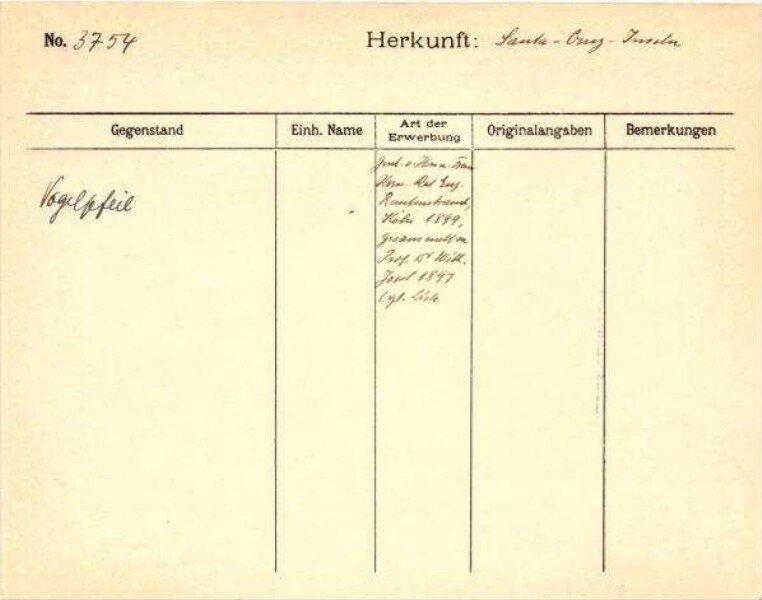 No. 3754 Herkunft: Santa-Cruz-Inseln
Gegenstand Einh. Name Art der Erwerbung Originalangaben Bemerkungen
Vogelpfeil
Gesch. v. Herrn u. Frau
Kom. Rat Eug.
Rautenstrauch,
Köln 1899,
gesammelt von
Prof. Dr Wilh.
Joest 1897